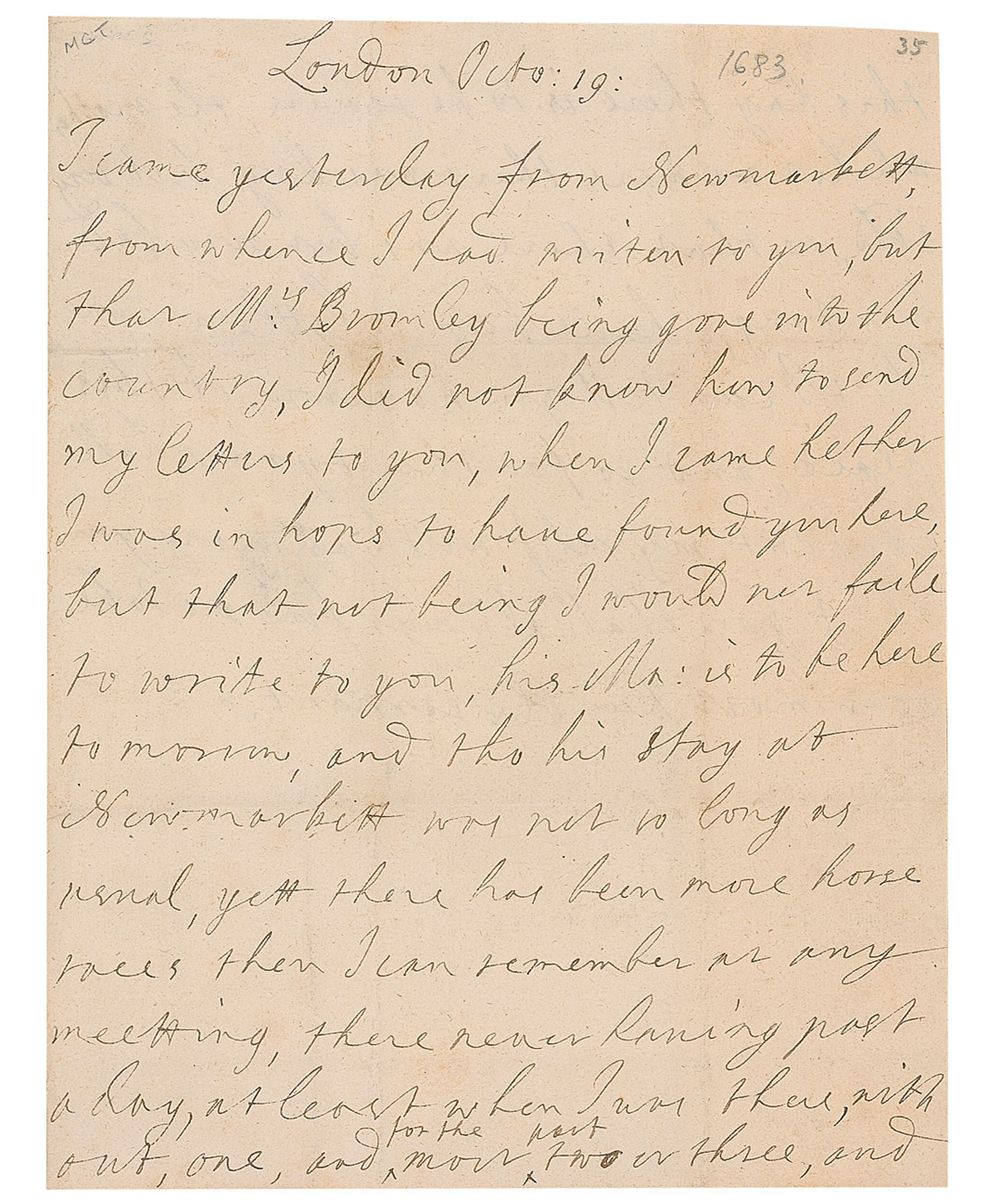 MGT 35
London Octo: 19: 1683
I came yesterday from Newmarkett,
from whence I had writen to you, but
that Mrs Bromley being gone into the
country, I did not know how to send
my letters to you, when I came hether
I was in hops to have found you here,
but that not being I would not faile
to write to you, his Ma: is to be here
to morow, and tho his stay at
Newmarkett was not so long as
usual, yett there has been more horse
races then I can remember at any
meetting, there never having past
a day, at least when I was there, with
for the part
out, one, and most two or three, and